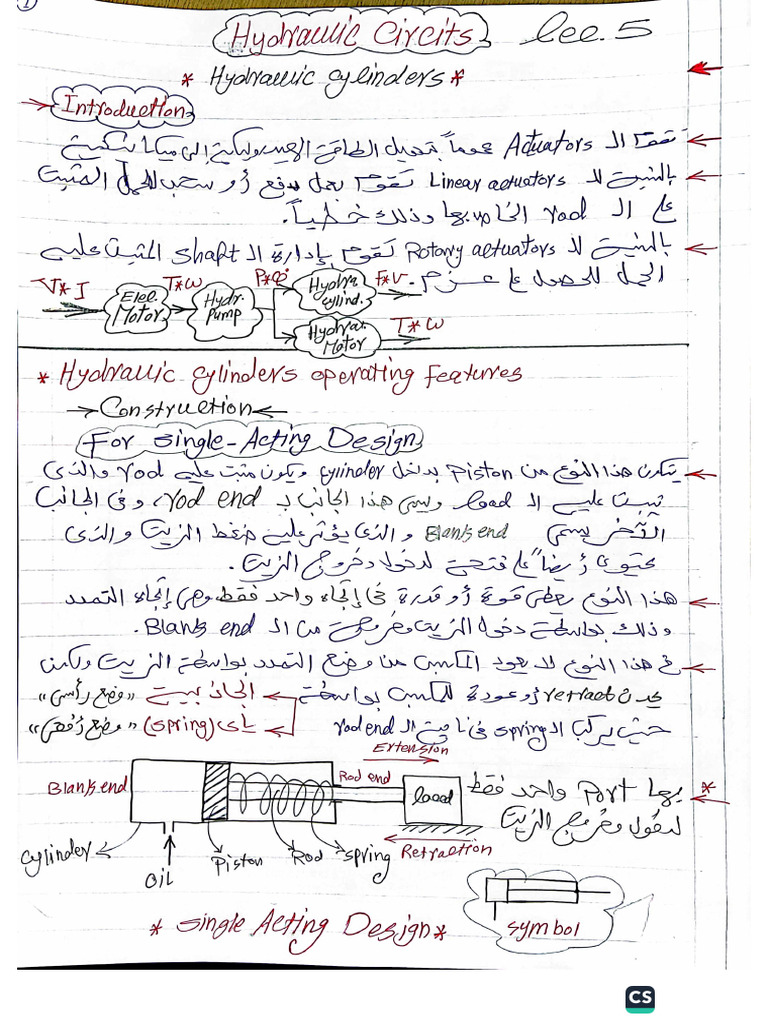 1
Hydraulic Circits lec.5
* Hydraulic cylinders *
Introduction
تقوم الـ Actuators عموماً بتحويل الطاقة الهيدروليكية إلى ميكانيكية
بالنسبة لـ Linear actuators تقوم بعمل دفع أو سحب للحمل المثبت
على الـ rod الخاص بها وذلك خطياً.
بالنسبة لـ Rotary actuators تقوم بإدارة الـ shaft المثبت عليه
الحمل للحصول على عزم.
V*I Elec. Motor T*ω Hydr. Pump P*Q° Hydra. cylind. F*V
Hydrau. Motor T*ω
* Hydraulic cylinders operating features
→ Construction ←
For Single-Acting Design
يتكون هذا النوع من Piston بداخل cylinder ويكون مثبت عليه rod والذى
يثبت عليه الـ load ويسمى هذا الجانب بـ rod end، وفى الجانب
الآخر يسمى Blank end والذى يؤثر عليه ضغط الزيت والذى
يحتوى أيضاً على فتحة لدخول وخروج الزيت.
هذا النوع يعطى قوة أو قدرة فى إتجاه واحد فقط وهى إتجاه التمدد
وذلك بواسطة دخول الزيت وخروجه من الـ Blank end.
فى هذا النوع لا يعود المكبس من وضع التمدد بواسطة الزيت ولكن
يحدث retract أو عودة للمكبس بواسطة الجاذبية "وضع رأسى"
ياى (spring) "وضع أفقى"
حيث يركب الـ spring فى ناحية الـ rod end
Extension
Blank end
Rod end
load
* بها Port واحد فقط
لدخول وخروج الزيت
Retraction
cylinder
oil
Piston
Rod
spring
symbol
* Single Acting Design *
CS